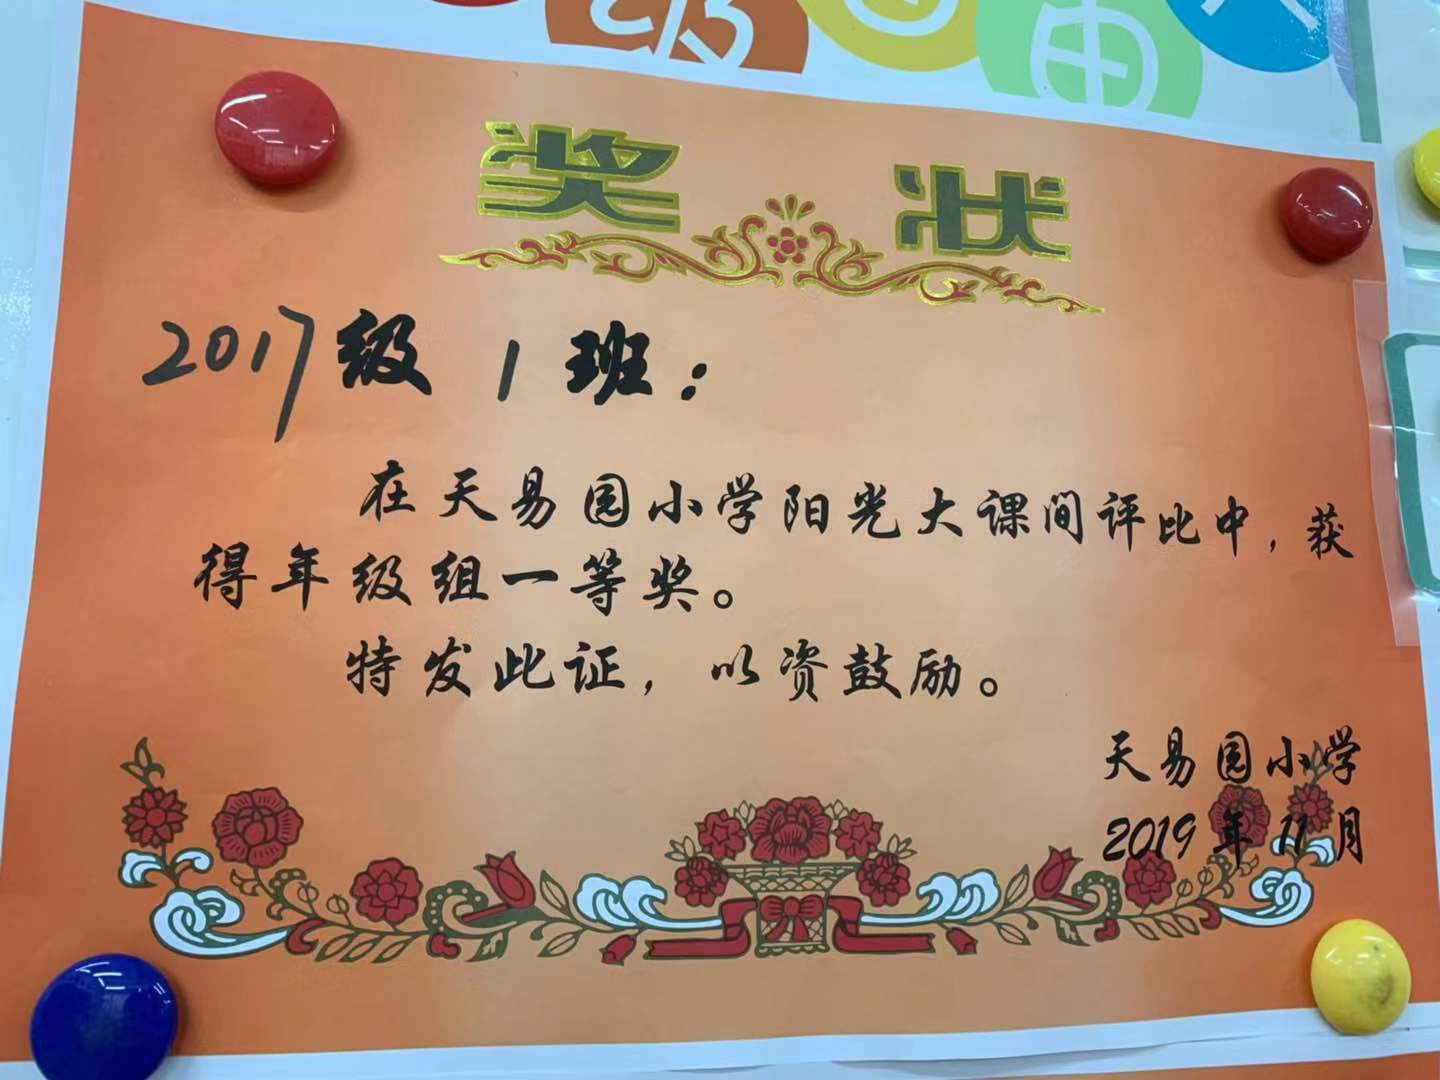 奖状
2017级 1 班：
在天易园小学阳光大课间评比中，获
得年级组一等奖。
特发此证，以资鼓励。
天易园小学
2019 年 11 月